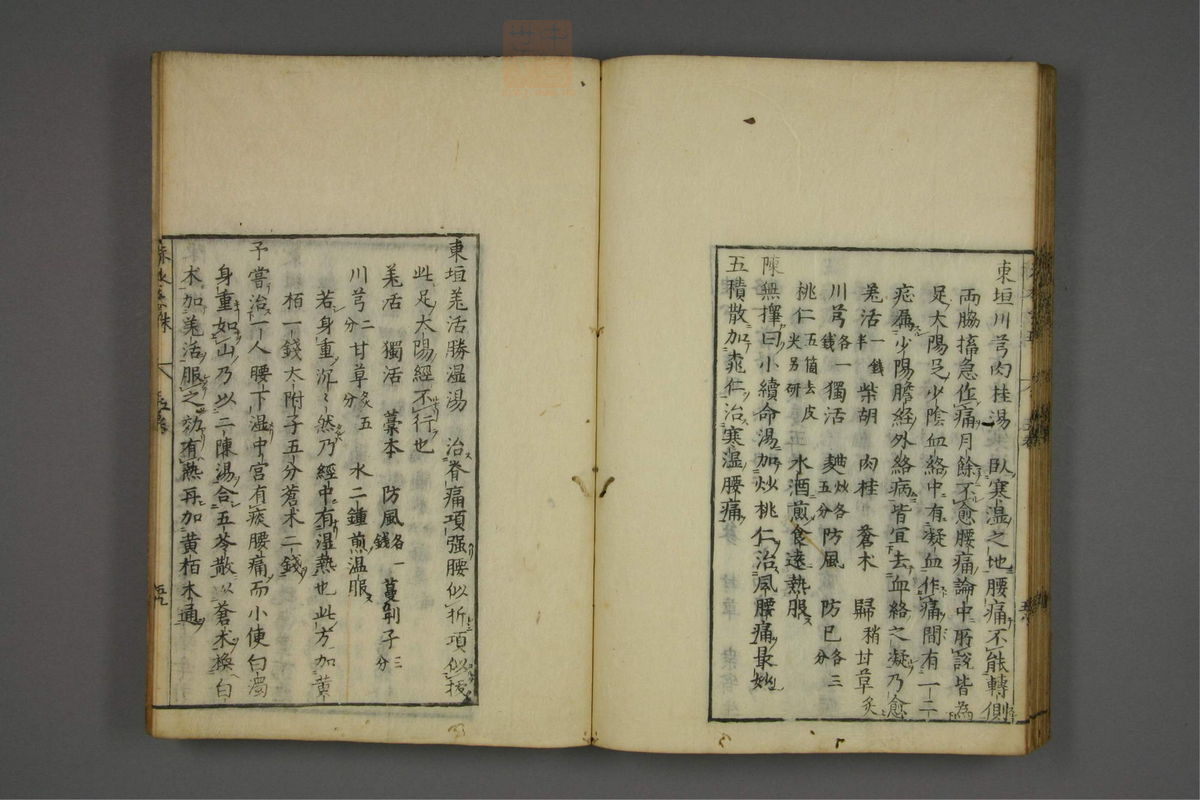 東垣川芎肉桂湯 臥寒湿之地腰痛不能轉側
両脇搐急作痛月餘不愈腰痛論中所説皆為
足太陽足少陰血絡中有凝血作痛間有一二
症屬少陽膽経外絡病皆宜去血絡之凝乃愈
羌活一錢半 柴胡 肉桂 蒼朮 歸稍 甘草炙
川芎各一錢 獨活 麯炒各五分 防風 防已各三分
桃仁五箇去皮尖另研 水酒煎食遠熱服
陳無擇曰小續命湯加炒桃仁治風腰痛最妙
五積散加桃仁治寒湿腰痛
東垣羌活勝湿湯 治脊痛項强腰似折項似抜
此足太陽経不行也
羌活 獨活 藁本 防風各一錢 蔓荊子三分
川芎二分 甘草炙五分 水二鍾煎温服
若身重沉々然乃経中有湿熱也此方加黄
栢一錢大附子五分蒼朮二錢
予嘗治一人腰下湿中宮有痰腰痛而小便白濁
身重如山乃以二陳湯合五苓散以蒼朮換白
朮加羌活服之効有熱再加黄栢木通